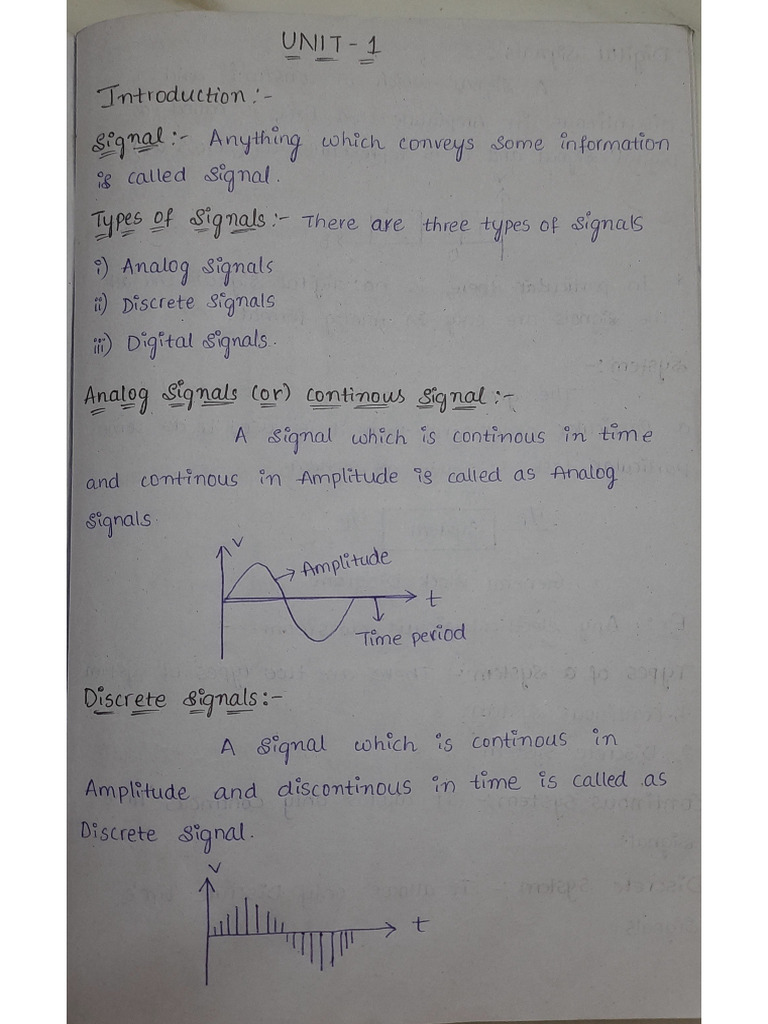 UNIT - 1
Introduction :-
Signal :- Anything which conveys some information
is called signal.
Types of Signals :- There are three types of signals
i) Analog Signals
ii) Discrete Signals
iii) Digital Signals.
Analog Signals (or) continous Signal :-
A signal which is continous in time
and continous in Amplitude is called as Analog
signals
V
Amplitude
t
Time period
Discrete Signals :-
A signal which is continous in
Amplitude and discontinous in time is called as
Discrete signal.
V
t